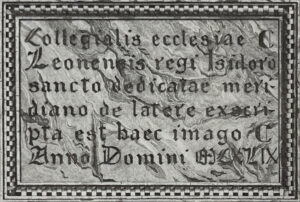 Collegialis ecclesiae C
Leonensis regi Isidoro
sancto dedicatae meri-
diano de latere exscri-
pta est haec imago C
Anno Domini